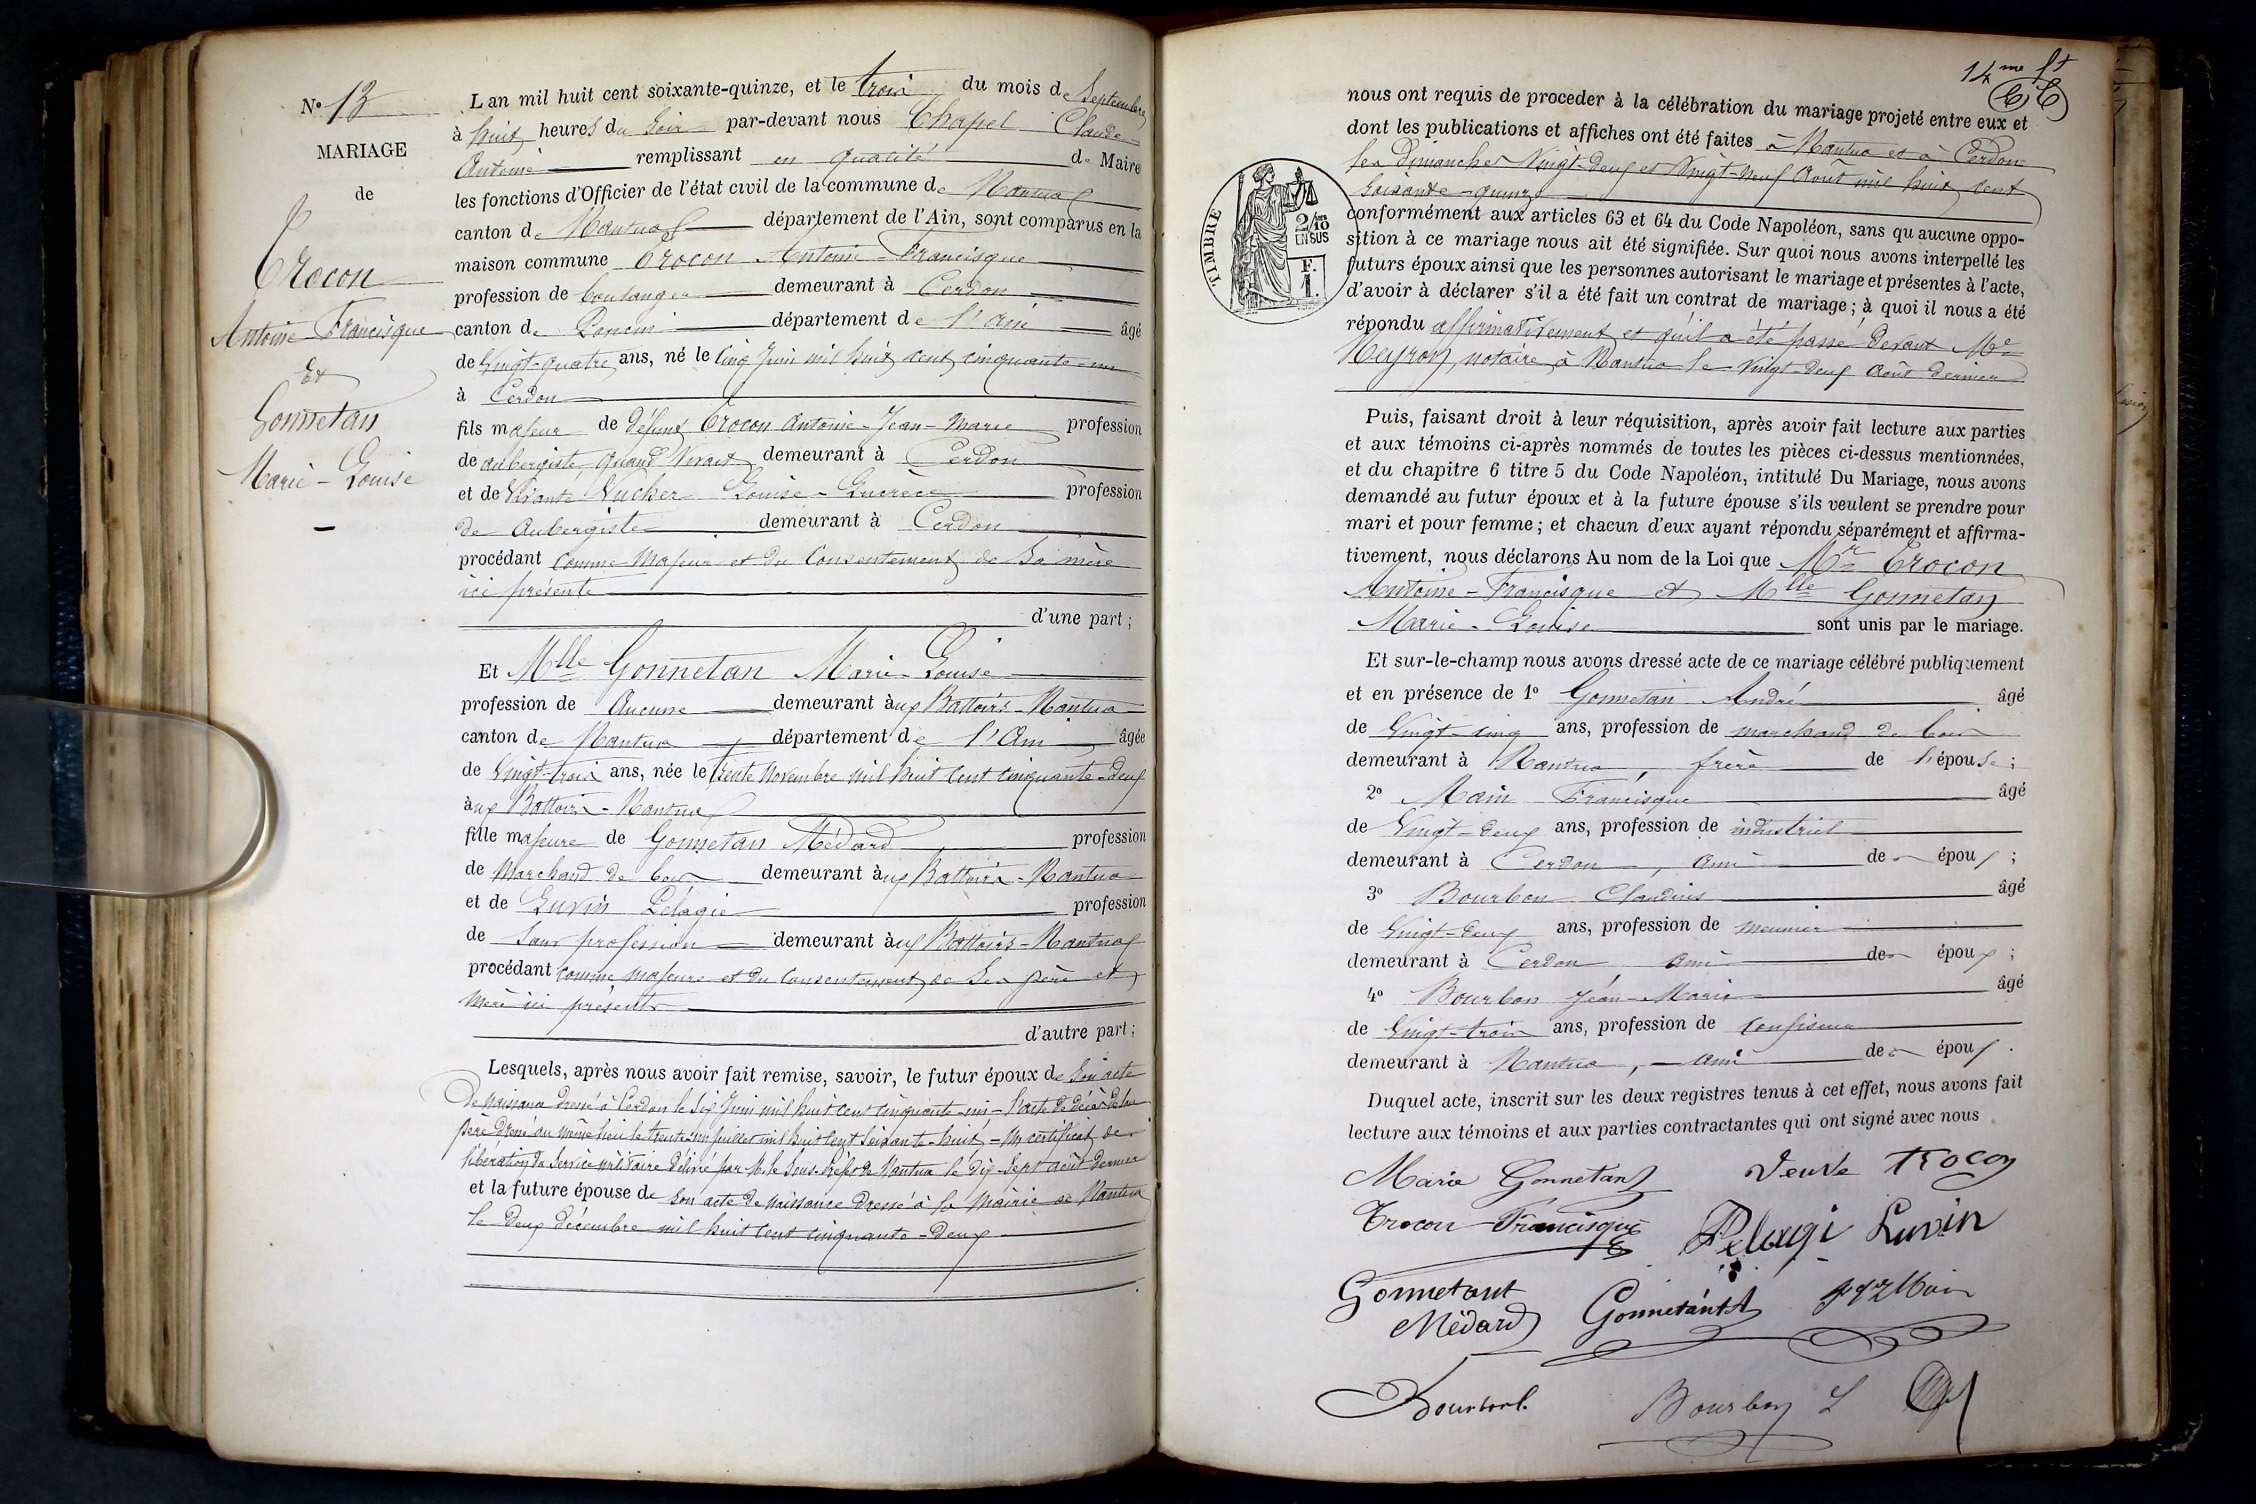 N° 13
MARIAGE
de
Trocon
Antoine Francisque
Et
Gonnetan
Marie-Louise
L'an mil huit cent soixante-quinze, et le trois du mois de Septembre
à huit heures du Soir par-devant nous Chapel Claude
Antoine remplissant en qualité de Maire
les fonctions d'Officier de l'état civil de la commune de Nantua
canton de Nantua département de l'Ain, sont comparus en la
maison commune Trocon Antoine-Francisque
profession de boulanger demeurant à Cerdon
canton de Poncin département de l'Ain âgé
de Vingt-quatre ans, né le Cinq Juin mil huit cent cinquante-un
à Cerdon
fils majeur de défunt Trocon Antoine-Jean-Marie profession
de aubergiste quand Vivait demeurant à Cerdon
et de Vivante Vucher Louise-Lucrèce profession
de Aubergiste demeurant à Cerdon
procédant comme Majeur et du Consentement de Sa mère
ici présente
d'une part ;
Et Mlle Gonnetan Marie-Louise
profession de Aucune demeurant aux Battoirs-Nantua
canton de Nantua département de l'Ain âgée
de Vingt-trois ans, née le trente Novembre mil huit cent cinquante-deux
aux Battoirs-Nantua
fille majeure de Gonnetan Médard profession
de Marchand de bois demeurant aux Battoirs-Nantua
et de Luvin Pélagie profession
de Sans profession demeurant aux Battoirs-Nantua
procédant comme majeure et du consentement de Ses père et
Mère ici présents
d'autre part ;
Lesquels, après nous avoir fait remise, savoir, le futur époux de Son acte
De naissance dressé à Cerdon le Six Juin mil huit cent cinquante-un - l'acte de décès de son
père dressé au même lieu le trente-un juillet mil huit cent soixante-huit - Un certificat de
libération du Service militaire délivré par M. le Sous-Préfet de Nantua le dix-sept août dernier
et la future épouse de Son acte de Naissance dressé à la Mairie de Nantua
le Deux décembre mil huit cent cinquante-deux
14me ft
nous ont requis de proceder à la célébration du mariage projeté entre eux et
dont les publications et affiches ont été faites à Nantua et à Cerdon
les Dimanches Vingt-deux et Vingt-neuf Août mil huit cent
Soixante-quinze
TIMBRE
2/10
EN SUS
F.
1.
conformément aux articles 63 et 64 du Code Napoléon, sans qu'aucune oppo-
sition à ce mariage nous ait été signifiée. Sur quoi nous avons interpellé les
futurs époux ainsi que les personnes autorisant le mariage et présentes à l'acte,
d'avoir à déclarer s'il a été fait un contrat de mariage ; à quoi il nous a été
répondu affirmativement et qu'il a été passé devant Me
Neyron, notaire à Nantua le Vingt-deux Août dernier
Puis, faisant droit à leur réquisition, après avoir fait lecture aux parties
et aux témoins ci-après nommés de toutes les pièces ci-dessus mentionnées,
et du chapitre 6 titre 5 du Code Napoléon, intitulé Du Mariage, nous avons
demandé au futur époux et à la future épouse s'ils veulent se prendre pour
mari et pour femme ; et chacun d'eux ayant répondu séparément et affirma-
tivement, nous déclarons Au nom de la Loi que Mr Trocon
Antoine-Francisque et Mlle Gonnetan
Marie-Louise sont unis par le mariage.
Et sur-le-champ nous avons dressé acte de ce mariage célébré publiquement
et en présence de 1° Gonnetan André âgé
de Vingt-cinq ans, profession de marchand de bois
demeurant à Nantua, frère de l'épouse ;
2° Main Francisque âgé
de Vingt-deux ans, profession de industriel
demeurant à Cerdon, Ami des époux ;
3° Bourbon Claudius âgé
de Vingt-deux ans, profession de meunier
demeurant à Cerdon ami des époux ;
4° Bourbon Jean-Marie âgé
de Vingt-trois ans, profession de Confiseur
demeurant à Nantua, ami des époux .
Duquel acte, inscrit sur les deux registres tenus à cet effet, nous avons fait
lecture aux témoins et aux parties contractantes qui ont signé avec nous
Marie Gonnetan Veuve Trocon
Trocon Francisque Pélagi Luvin
Gonnetant
Médard Gonnetant A Main
Bourbon Bourbon